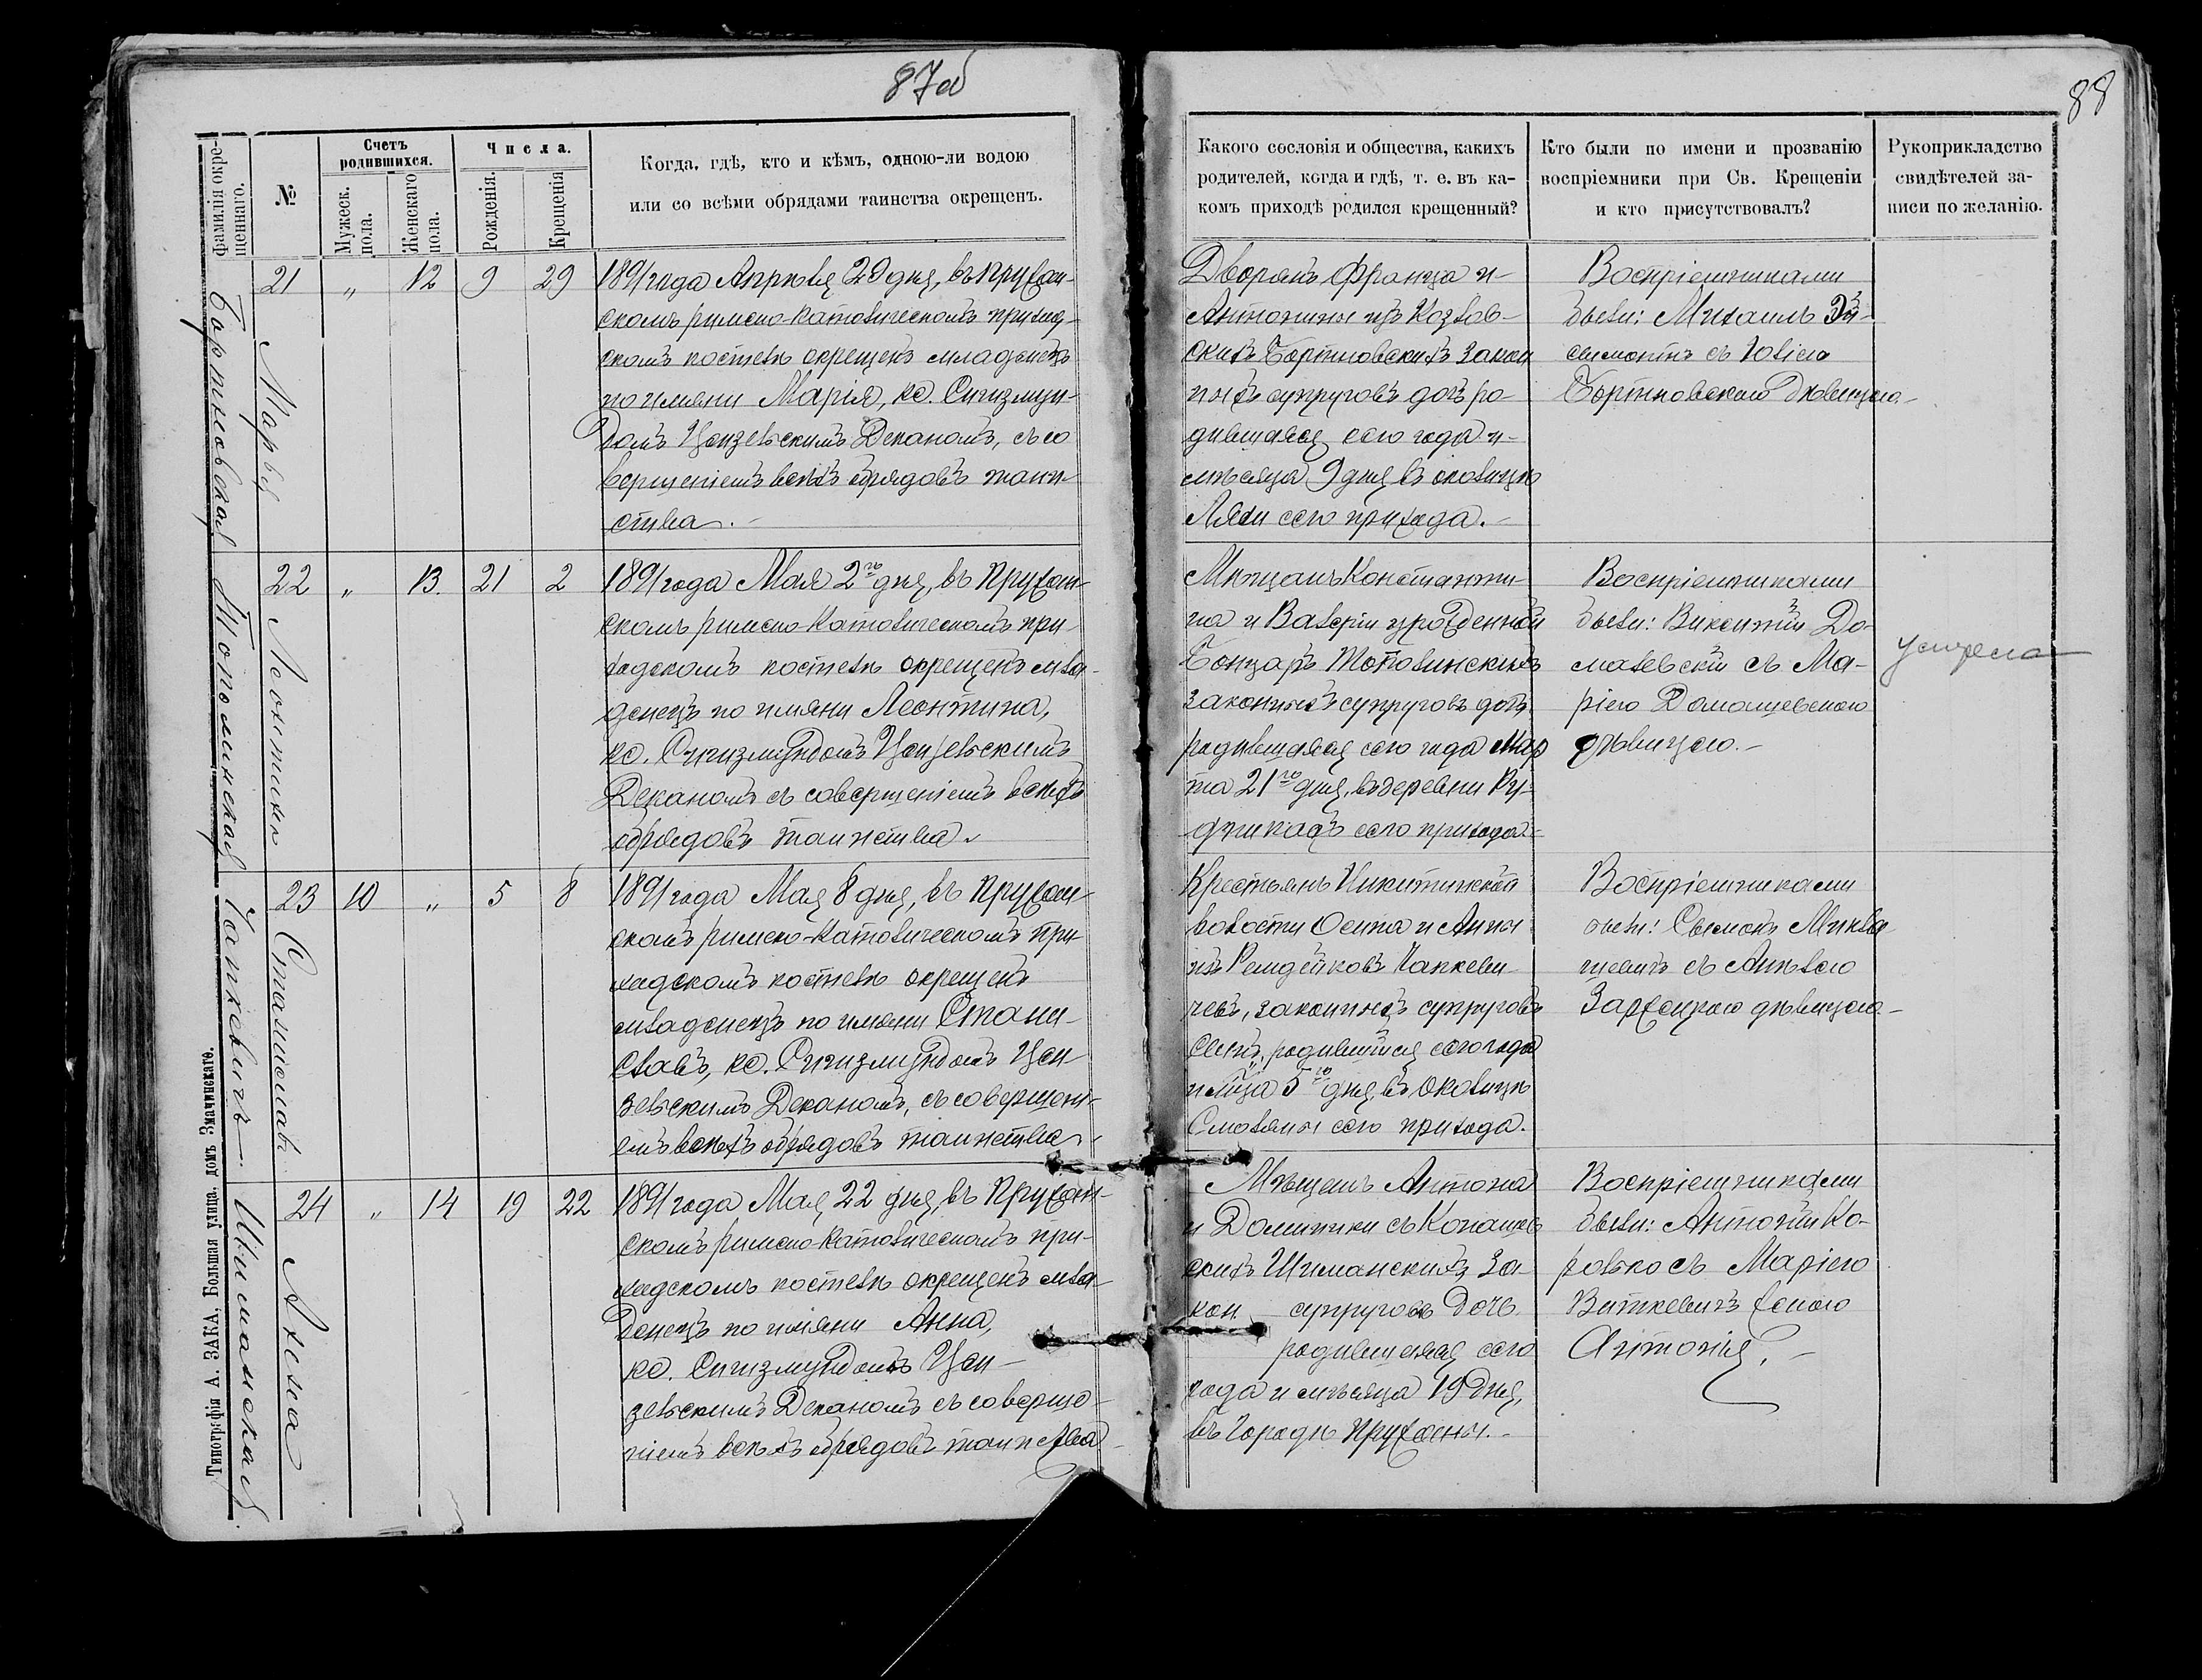 87об
88
Фамилія окре-
щеннаго.
№
Счетъ
родившихся.
Мужеск.
пола.
Женскаго
пола.
Числа.
Рожденія.
Крещенія
Когда, гдѣ, кто и кѣмъ, одною-ли водою
или со всѣми обрядами таинства окрещенъ.
Какого сословія и общества, какихъ
родителей, когда и гдѣ, т. е. въ ка-
комъ приходѣ родился крещенный?
Кто были по имени и прозванію
воспріемники при Св. Крещеніи
и кто присутствовалъ?
Рукоприкладство
свидѣтелей за-
писи по желанію.
Бортновская
Марья
21 „ 12 9 29
1891 года Апрѣля 29 дня, въ Пружан-
скомъ римско-католическомъ приход-
скомъ костелѣ окрещенъ младенецъ
по имяни Марія, кс. Сигизмун-
домъ Цензельскимъ Деканомъ, съ со
вершеніемъ всѣхъ обрядовъ таин-
ства.
Дворянъ Франца и
Антонины изъ Козлов-
скихъ Бортновскихъ закон
ныхъ супруговъ дочь ро-
дившаяся сего года и
мѣсяца 9 дня въ околицѣ
Ляхи сего прихода.
Воспріемниками
были: Михаилъ
съ Юліею
Бортновскою дѣвицею
Тополинская
Леонтина
22 „ 13. 21 2
1891 года Мая 2го дня, въ Пружан-
скомъ римско-католическомъ при-
ходскомъ костелѣ окрещенъ мла-
денецъ по имяни Леонтина,
кс. Сигизмундомъ Цензельскимъ
Деканомъ съ совершеніемъ всѣхъ
обрядовъ таинства
Мѣщанъ Константи-
на и Валеріи урожденной
Бонцаръ Тополинскихъ
законныхъ супруговъ дочь
родившаяся сего года Мар
та 21го дня, въ деревни Ру-
дникахъ сего прихода
Воспріемниками
были: Викентій До-
малевскій съ Ма-
ріею Домашевскою
дѣвицею.
умерла
Чапкевичъ
Станиславъ
23 10 „ 5 8
1891 года Мая 8 дня, въ Пружан-
скомъ римско-католическомъ при-
ходскомъ костелѣ окрещенъ
младенецъ по имяни Стани-
славъ, кс. Сигизмундомъ Цен-
зельскимъ Деканомъ, съ совершені-
емъ всѣхъ обрядовъ таинства
Крестьянъ Никитинской
волости Осипа и Анны
изъ Ремдейковъ Чапкеви-
чевъ, законныхъ супруговъ
сынъ, родившійся сего года
и м-ца 5го дня, въ околицѣ
Смоляны сего прихода.
Воспріемниками
были: Сымонъ Микла
шевичъ съ Анелею
Зарецкою дѣвицею
Шиманская
Анна
24 „ 14 19 22
1891 года Мая 22 дня, въ Пружан-
скомъ римско-католическомъ при-
ходскомъ костелѣ окрещенъ мла-
денецъ по имяни Анна,
кс. Сигизмундомъ Цен-
зельскимъ Деканомъ съ соверше-
ніемъ всѣхъ обрядовъ таинства
Мѣщанъ Антона
и Доминики съ Копашев
скихъ Шиманскихъ за-
кон супруговъ дочь
родившаяся сего
года и мѣсяца 19 дня,
въ городѣ Пружаны.
Воспріемниками
были: Антоній Ко-
ролько съ Маріею
Виткевичъ женою
Антонія.
Типографія А. ЗАКА, Большая улица, домъ Змачинскаго.